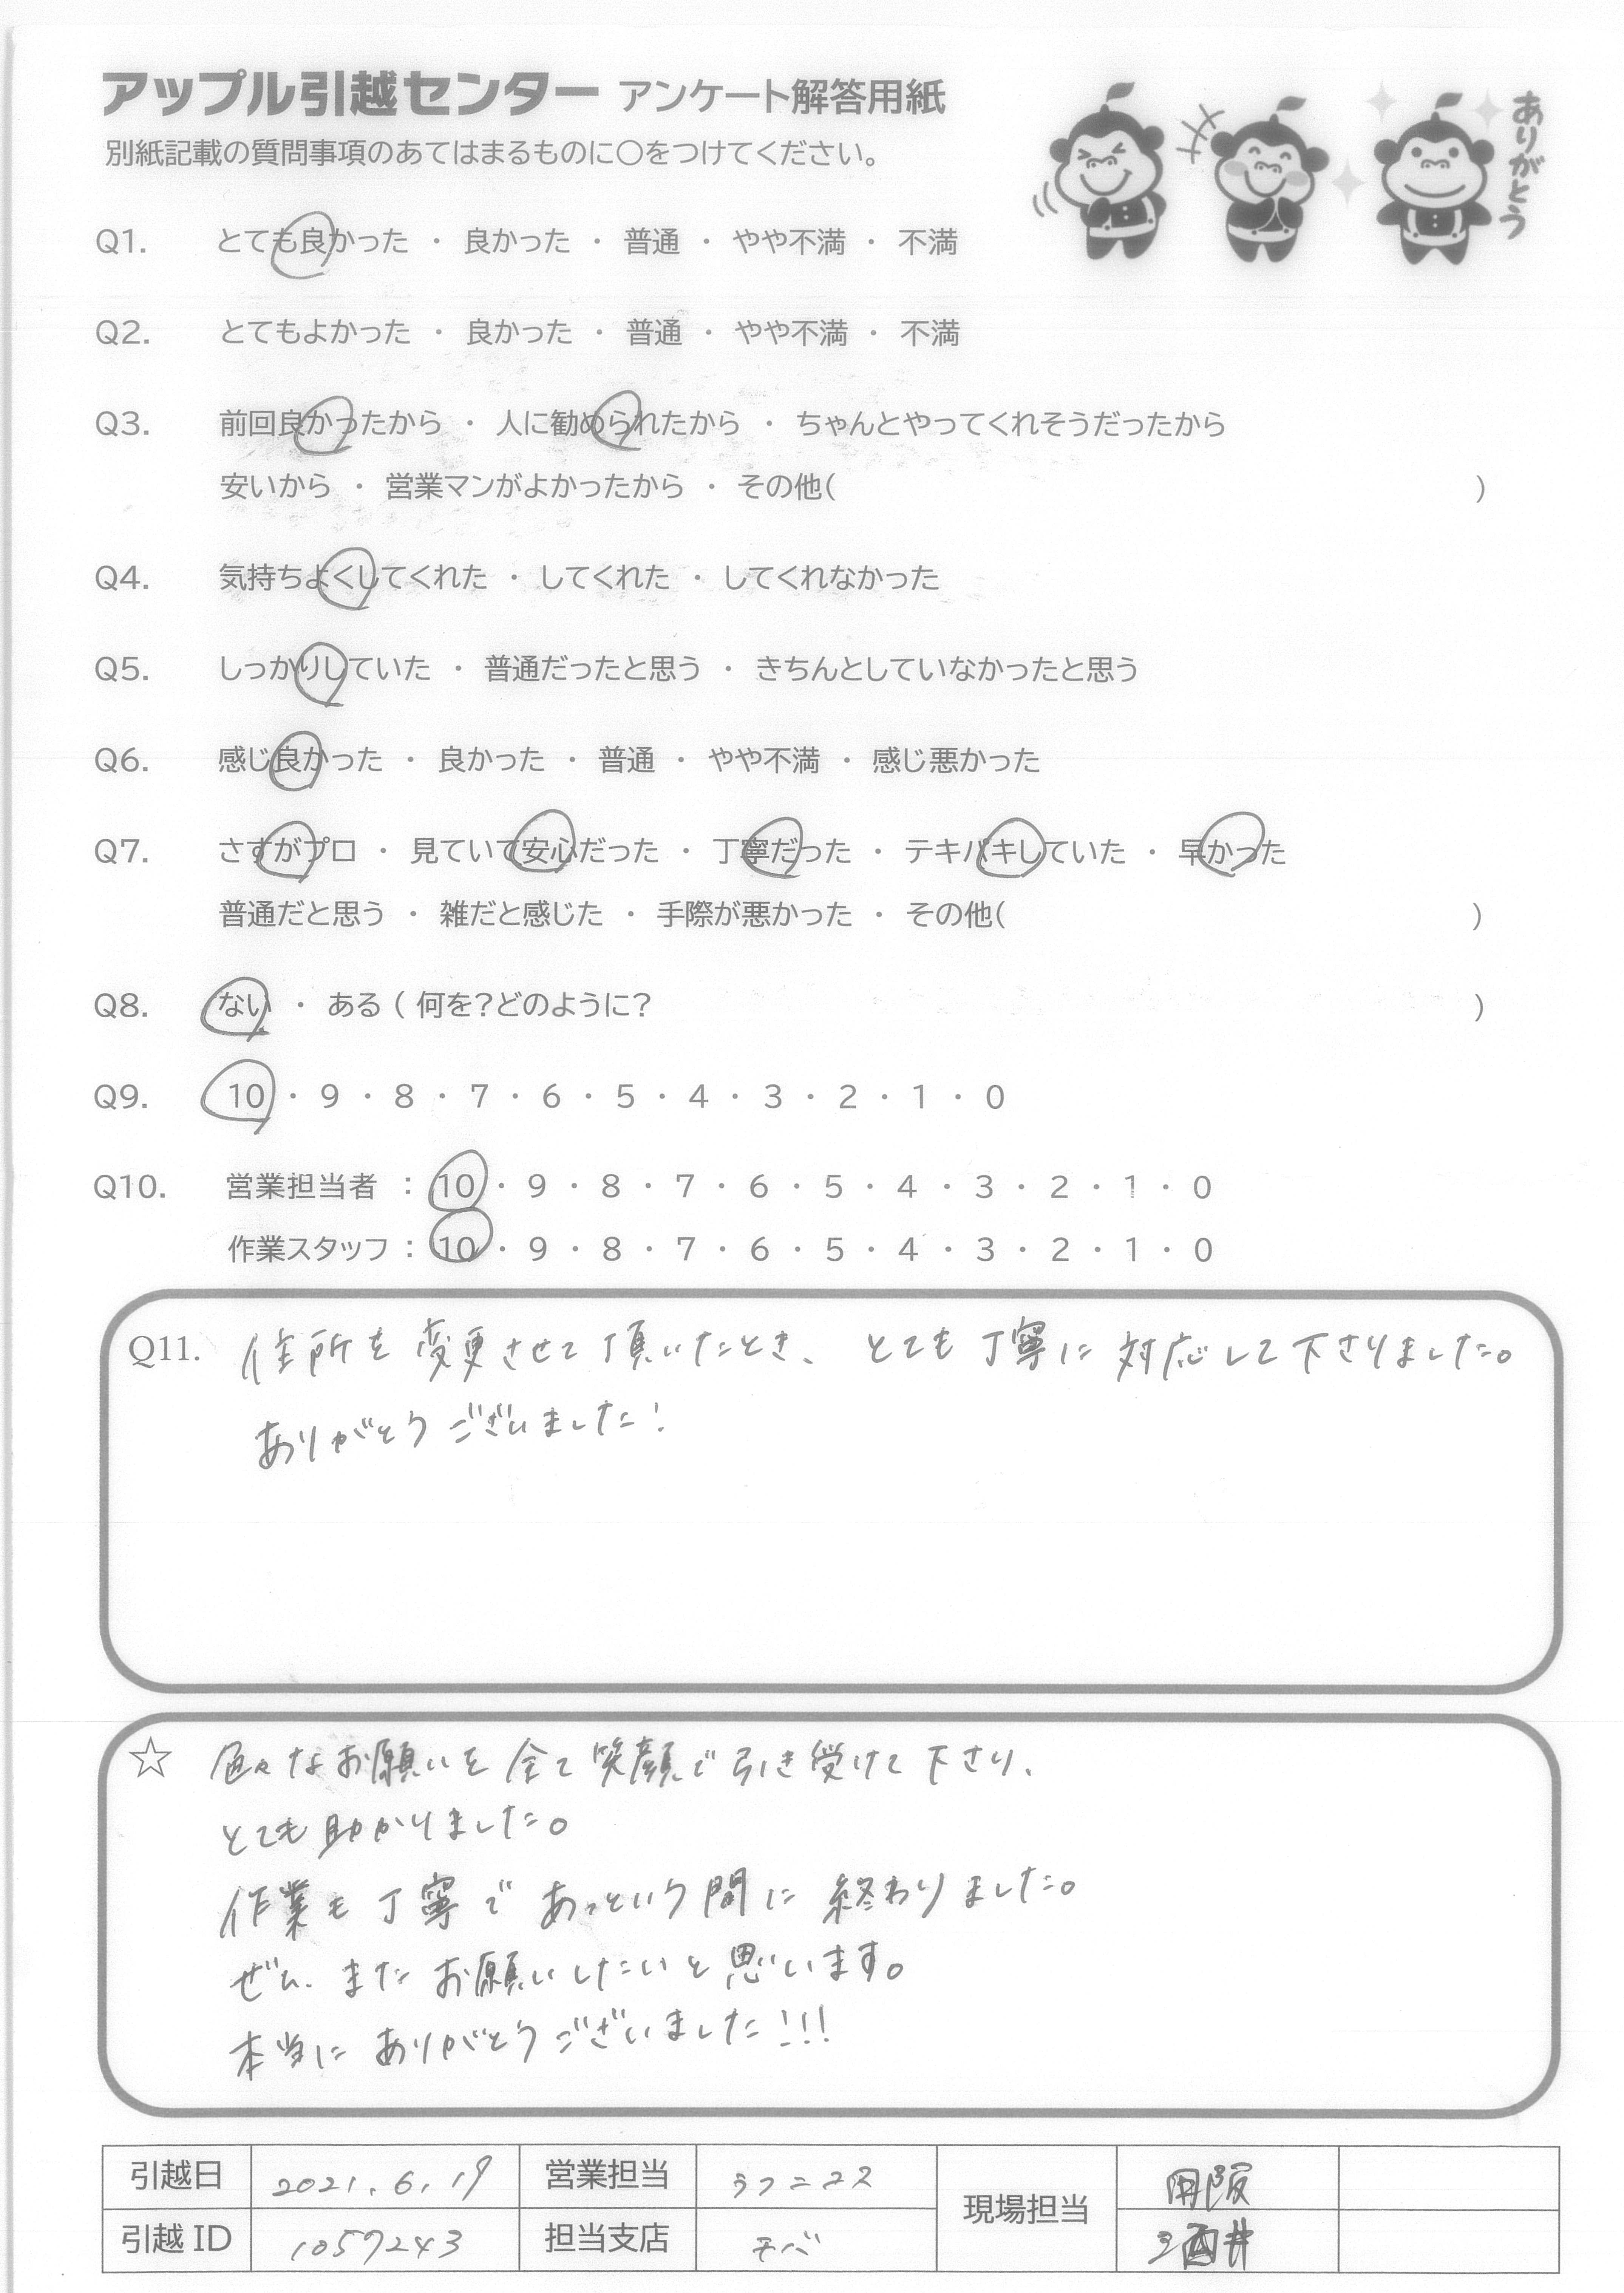 アップル引越センター アンケート解答用紙
別紙記載の質問事項のあてはまるものに○をつけてください。
ありがとう
Q1. とても良かった ・ 良かった ・ 普通 ・ やや不満 ・ 不満
Q2. とてもよかった ・ 良かった ・ 普通 ・ やや不満 ・ 不満
Q3. 前回良かったから ・ 人に勧められたから ・ ちゃんとやってくれそうだったから
安いから ・ 営業マンがよかったから ・ その他( )
Q4. 気持ちよくしてくれた ・ してくれた ・ してくれなかった
Q5. しっかりしていた ・ 普通だったと思う ・ きちんとしていなかったと思う
Q6. 感じ良かった ・ 良かった ・ 普通 ・ やや不満 ・ 感じ悪かった
Q7. さすがプロ ・ 見ていて安心だった ・ 丁寧だった ・ テキパキしていた ・ 早かった
普通だと思う ・ 雑だと感じた ・ 手際が悪かった ・ その他( )
Q8. ない ・ ある ( 何を?どのように? )
Q9. 10 ・ 9 ・ 8 ・ 7 ・ 6 ・ 5 ・ 4 ・ 3 ・ 2 ・ 1 ・ 0
Q10. 営業担当者 : 10 ・ 9 ・ 8 ・ 7 ・ 6 ・ 5 ・ 4 ・ 3 ・ 2 ・ 1 ・ 0
作業スタッフ : 10 ・ 9 ・ 8 ・ 7 ・ 6 ・ 5 ・ 4 ・ 3 ・ 2 ・ 1 ・ 0
Q11. 住所を変更させて頂いたとき、とても丁寧に対応して下さりました。
ありがとうございました!
☆ 色々なお願いを全て笑顔で引き受けて下さり、
とても助かりました。
作業も丁寧であっという間に終わりました。
ぜひ、またお願いしたいと思います。
本当にありがとうございました!!!
引越日 2021.6.19 営業担当 現場担当
引越ID 1057243 担当支店 モバ 酒井